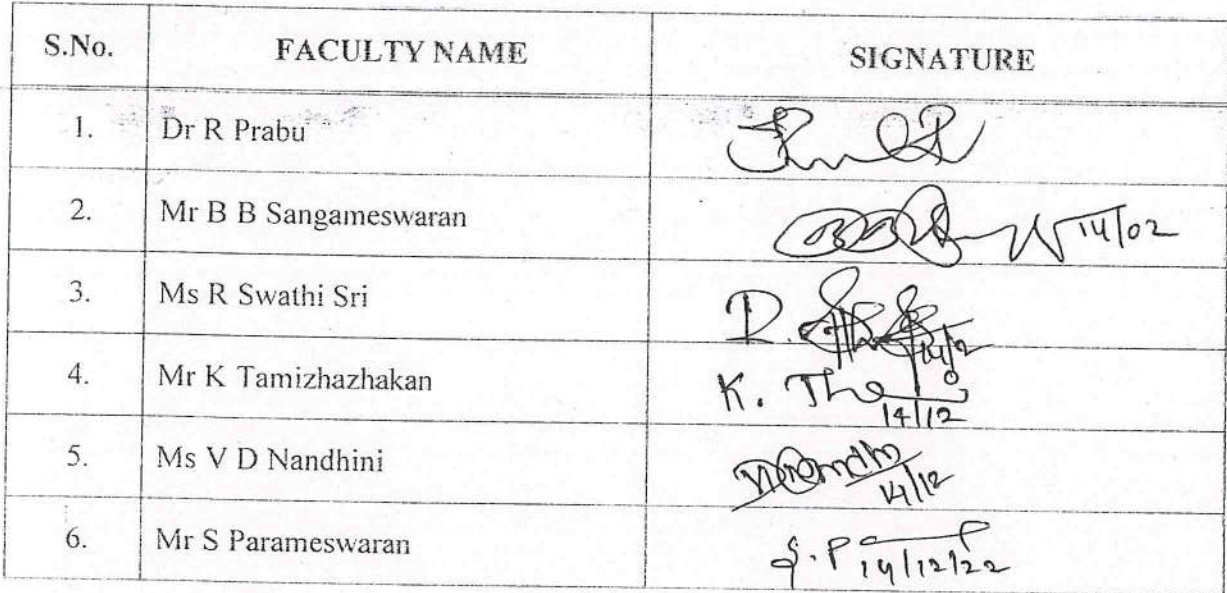 S.No. FACULTY NAME SIGNATURE
1. Dr R Prabu
2. Mr B B Sangameswaran 14/02
3. Ms R Swathi Sri R. 14/2
4. Mr K Tamizhazhakan K. 14/12
5. Ms V D Nandhini 14/12
6. Mr S Parameswaran S.P 14/12/22